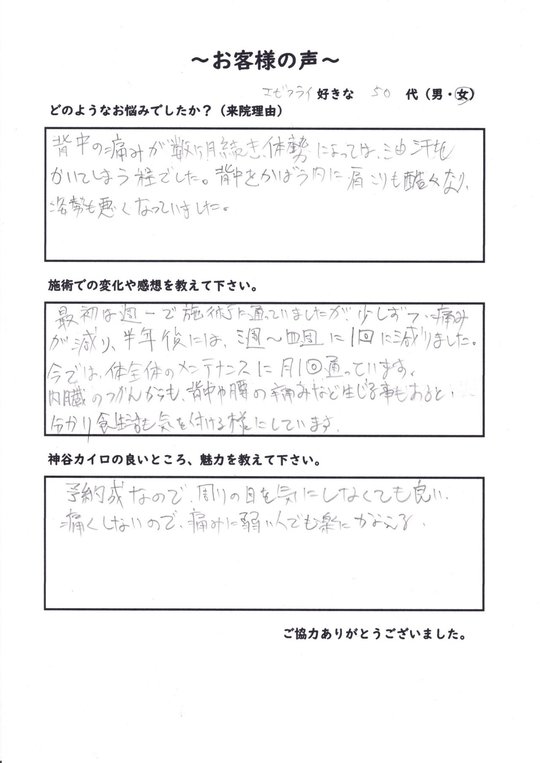 ～お客様の声～
エビフライ好きな 50 代（男・女）
どのようなお悩みでしたか？（来院理由）
背中の痛みが数ヶ月続き、体勢によっては、油汗も
かいてしまう程でした。背中をかばう内に肩こりも酷くなり、
姿勢も悪くなっていました。
施術での変化や感想を教えて下さい。
最初は週一で施術に通っていましたが、少しずつ、痛みが
が減り、半年後には、三週～四週に1回に減りました。
今では、体全体のメンテナンスに月1回通っています。
内臓のつかれからも、背中や腰の痛みなど生じる事もあると
分かり食生活も気を付ける様にしています。
神谷カイロの良いところ、魅力を教えて下さい。
予約成なので、周りの目を気にしなくても良い。
痛くしないので、痛みに弱い人でも楽に
ご協力ありがとうございました。